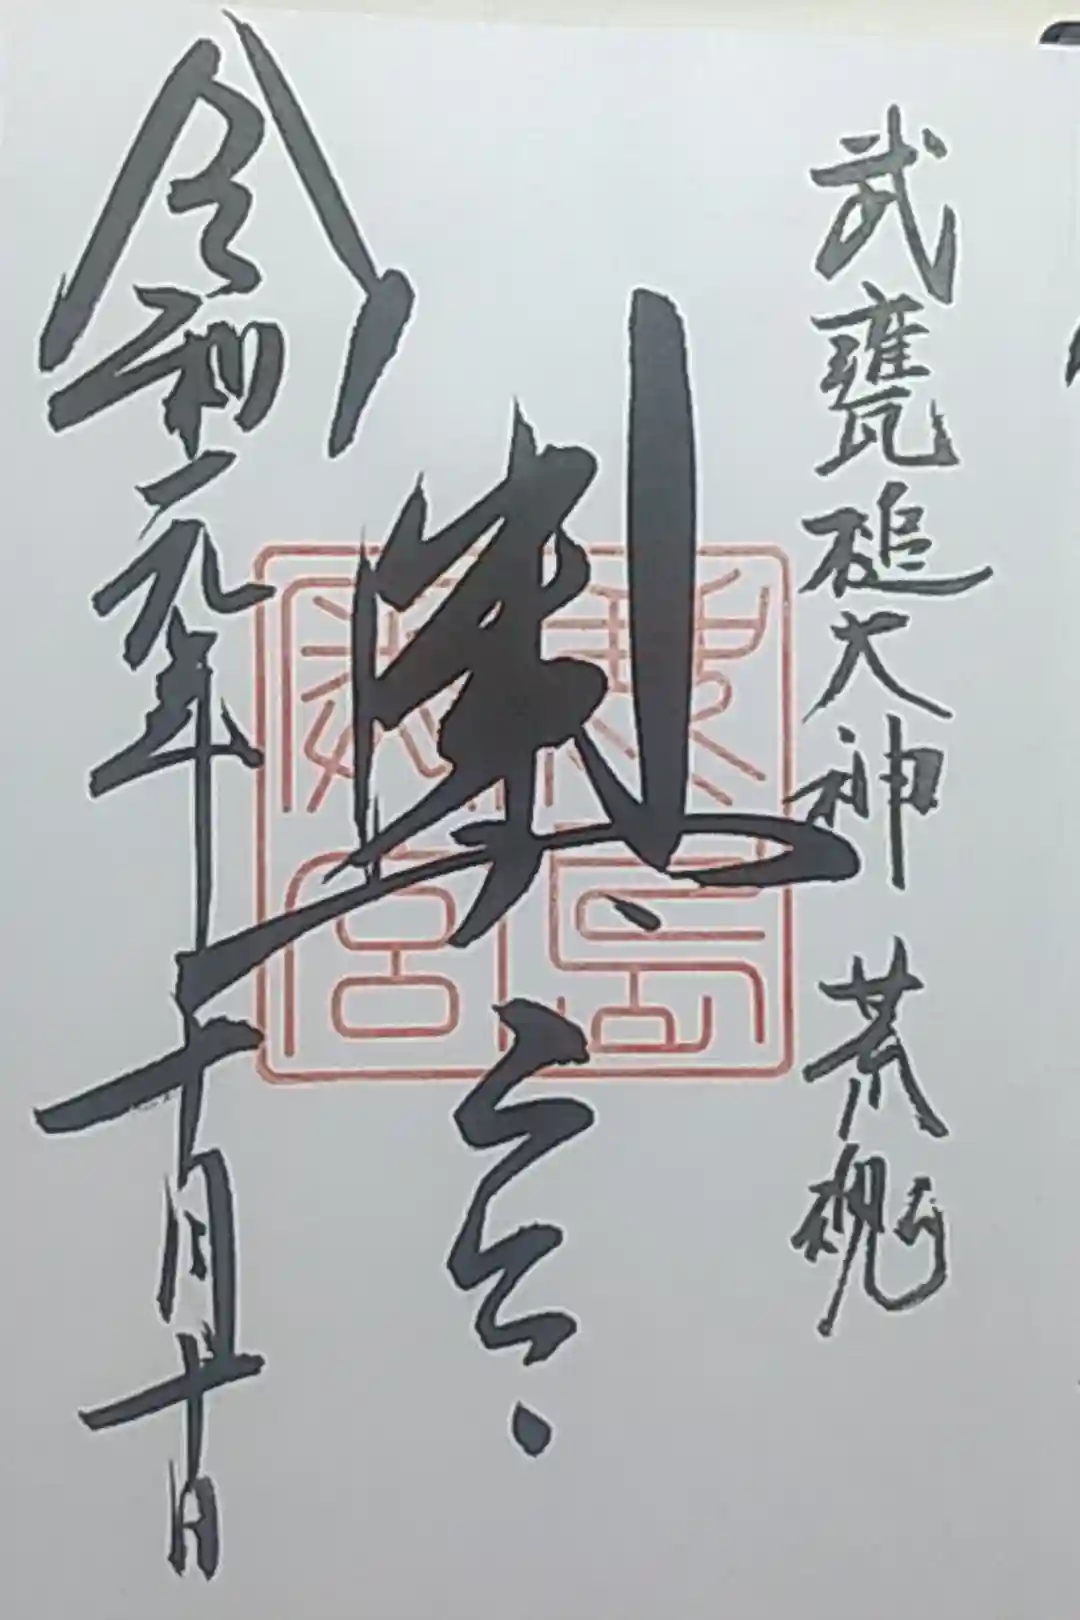 武甕槌大神 荒魂
奥宮
鹿島奥宮
令和元年十月十日